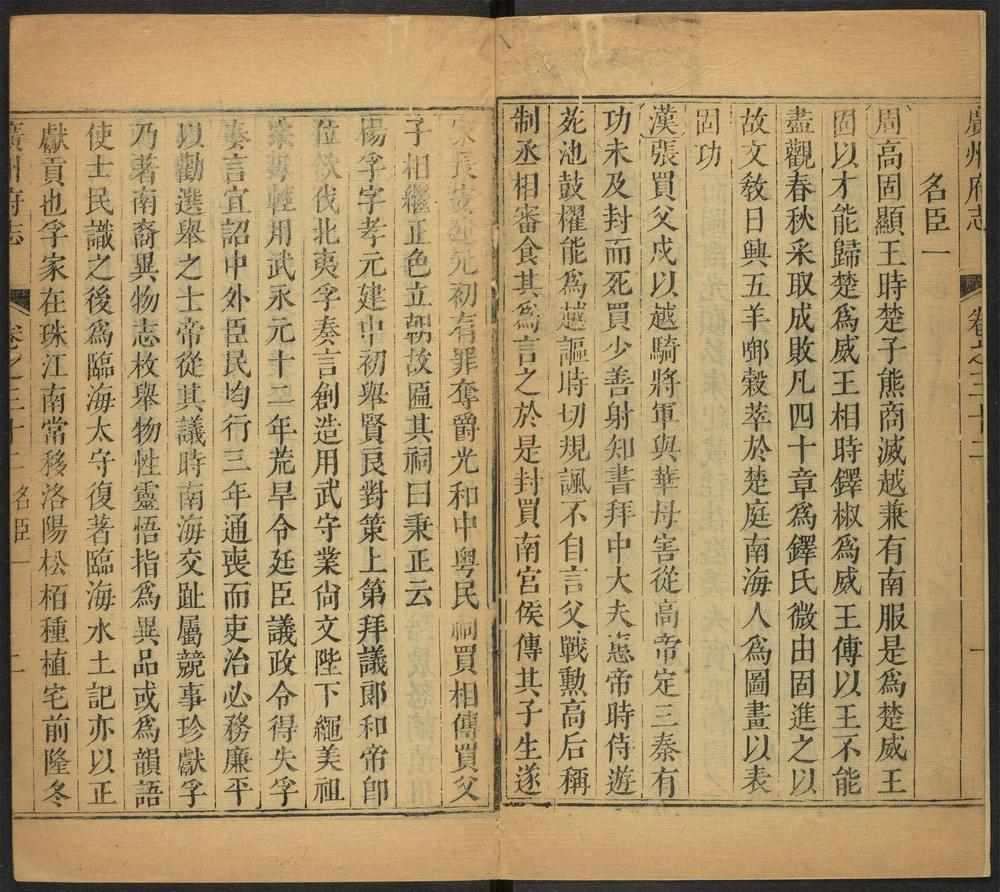 廣州府志 卷之三十二 一
名臣一
周高固顯王時楚子熊商滅越兼有南服是為楚威王
固以才能歸楚為威王相時鐸椒為威王傳以王不能
盡觀春秋采取成敗凡四十章為鐸氏微由固進之以
故文敎日興五羊啣穀萃於楚庭南海人為圖畫以表
固功
漢張買父戍以越騎將軍與華毋害從高帝定三秦有
功未及封而死買少善射知書拜中大夫惠帝時侍遊
苑池鼓櫂能為越謳時切規諷不自言父戰勲高后稱
制丞相審食其為言之於是封買南宫侯傳其子生遂
初有罪奪爵光和中粤民祠買相傳買父
子相繼正色立朝故匾其祠曰秉正云
楊孚字孝元建中初舉賢良對策上第拜議郎和帝即
位欲伐北夷孚奏言創造用武守業尚文陛下繩美祖
宗毋輕用武永元十二年荒旱令廷臣議政令得失孚
奏言宜詔中外臣民均行三年通喪而吏治必務廉平
以勸選舉之士帝從其議時南海交趾屬競事珍獻孚
乃著南裔異物志枚舉物性靈悟指為異品或為韻語
使士民識之後為臨海太守復著臨海水土記亦以正
獻貢也孚家在珠江南常移洛陽松栢種植宅前隆冬
廣州府志 卷之三十二 名臣一 二